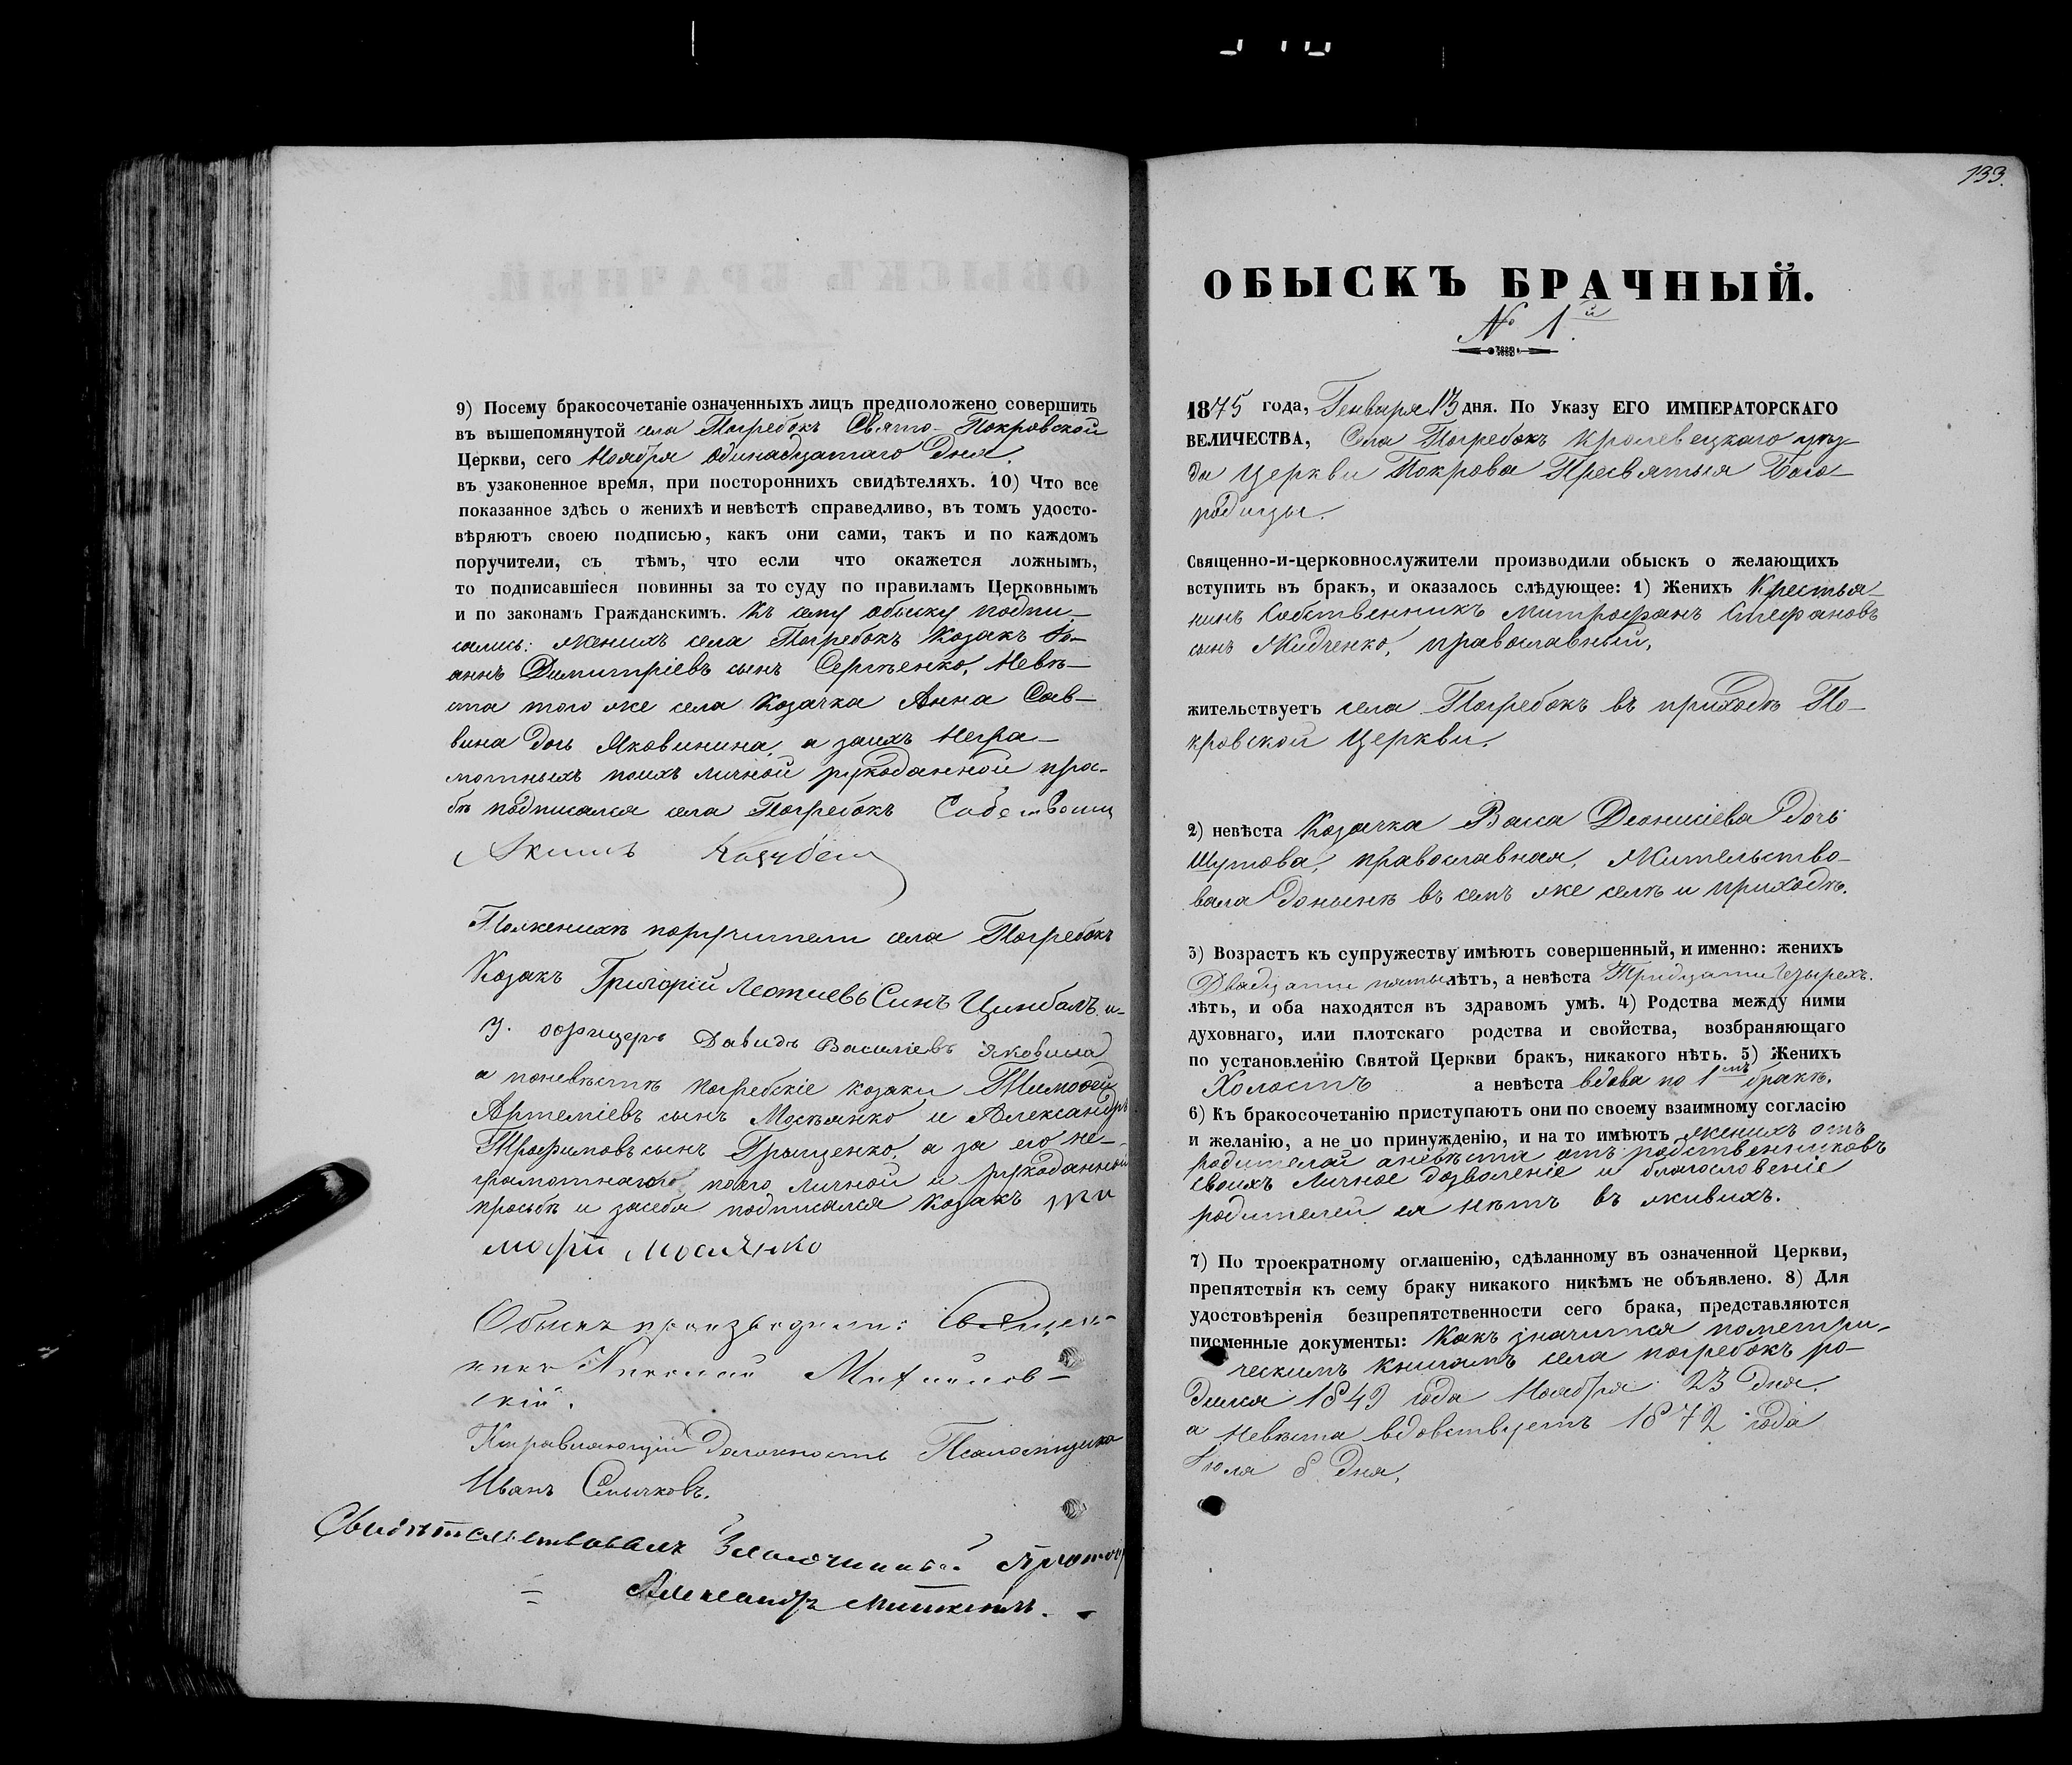 9) Посему бракосочетаніе означенныхъ лицъ предположено совершить
въ вышепомянутой села Погребокъ Свято-Покровской
Церкви, сего Ноября Одинадцатаго Дня.
въ узаконенное время, при постороннихъ свидѣтеляхъ. 10) Что все
показанное здѣсь о женихѣ и невѣстѣ справедливо, въ томъ удосто-
вѣряютъ своею подписью, какъ они сами, такъ и по каждомъ
поручители, съ тѣмъ, что если что окажется ложнымъ,
то подписавшіеся повинны за то суду по правиламъ Церковнымъ
и по законамъ Гражданскимъ. Къ сему обыску подпи-
сались: женихъ села Погребокъ Козакъ Іо-
аннъ Димитріевъ сынъ Сергѣенко, Невѣ-
ста того же села Козачка Анна Сав-
вина дочь Яковинина, а заихъ Негра-
мотныхъ поихъ личной рукоданной прос-
бѣ подписался села Погребокъ
Акимъ Кочубей
Поженихѣ поручители села Погребокъ
Козакъ Григорій Леотиевъ Синъ Цинбалъ и-
у. оофицеръ Давидъ Василіевъ Яковина
а поневѣстѣ погребскіе козаки Тимофей
Артеміевъ сынъ Мосѣянко и Александръ
Трофимовъ сынъ Грыщенко, а за его не-
грамотнаго поего личной и рукоданной
просьбѣ и засебя подписался Козакъ Ти
мофій Мосиянко
Обыскъ производили: Священ-
никъ Николай Михайлов-
скій.
Исправляющій Должность Псаломщика
Иванъ Смычковъ.
Свидѣтельствовалъ Благочинный Протоі
Александръ
133.
ОБЫСКЪ БРАЧНЫЙ.
№ 1й.
1875 года, Генваря 13 дня. По Указу ЕГО ИМПЕРАТОРСКАГО
ВЕЛИЧЕСТВА, Села Погребокъ Кролевецкаго уѣз-
да Церкви Покрова Пресвятыя Бого-
родицы.
Священно-и-церковнослужители производили обыскъ о желающихъ
вступить въ бракъ, и оказалось слѣдующее: 1) Женихъ Крестья-
нинъ Собственникъ Митрофанъ Стефановъ
сынъ Жидченко, православный,
жительствуетъ села Погребокъ въ приходѣ По-
кровской Церкви.
2) невѣста Козачка Васа Деонисіева Дочь
Шутова, православная, Жительство-
вала донынѣ въ семъ же селѣ и приходѣ.
3) Возрастъ къ супружеству имѣютъ совершенный, и именно: женихъ
Двадцати пяты лѣтъ, а невѣста Тридцати Чтырехъ.
лѣтъ, и оба находятся въ здравомъ умѣ. 4) Родства между ними
духовнаго, или плотскаго родства и свойства, возбраняющаго
по установленію Святой Церкви бракъ, никакого нѣтъ. 5) Женихъ
Холостъ а невѣста вдова по 1мъ бракѣ.
6) Къ бракосочетанію приступаютъ они по своему взаимному согласію
и желанію, а не по принужденію, и на то имѣютъ женихъ отъ
родителей аневѣста отъ родственниковъ
своихъ Личное дозволеніе и благословеніе
родителей ея нѣтъ въ живихъ.
7) По троекратному оглашенію, сдѣланному въ означенной Церкви,
препятствія къ сему браку никакого никѣмъ не объявлено. 8) Для
удостовѣренія безпрепятственности сего брака, представляются
писменные документы: Какъ значится пометри-
ческимъ книгамъ села погребокъ ро-
дился 1849 года Ноября 23 Дня,
а Невѣста вдовствуетъ 1872 года
Іюля 8 Дня,